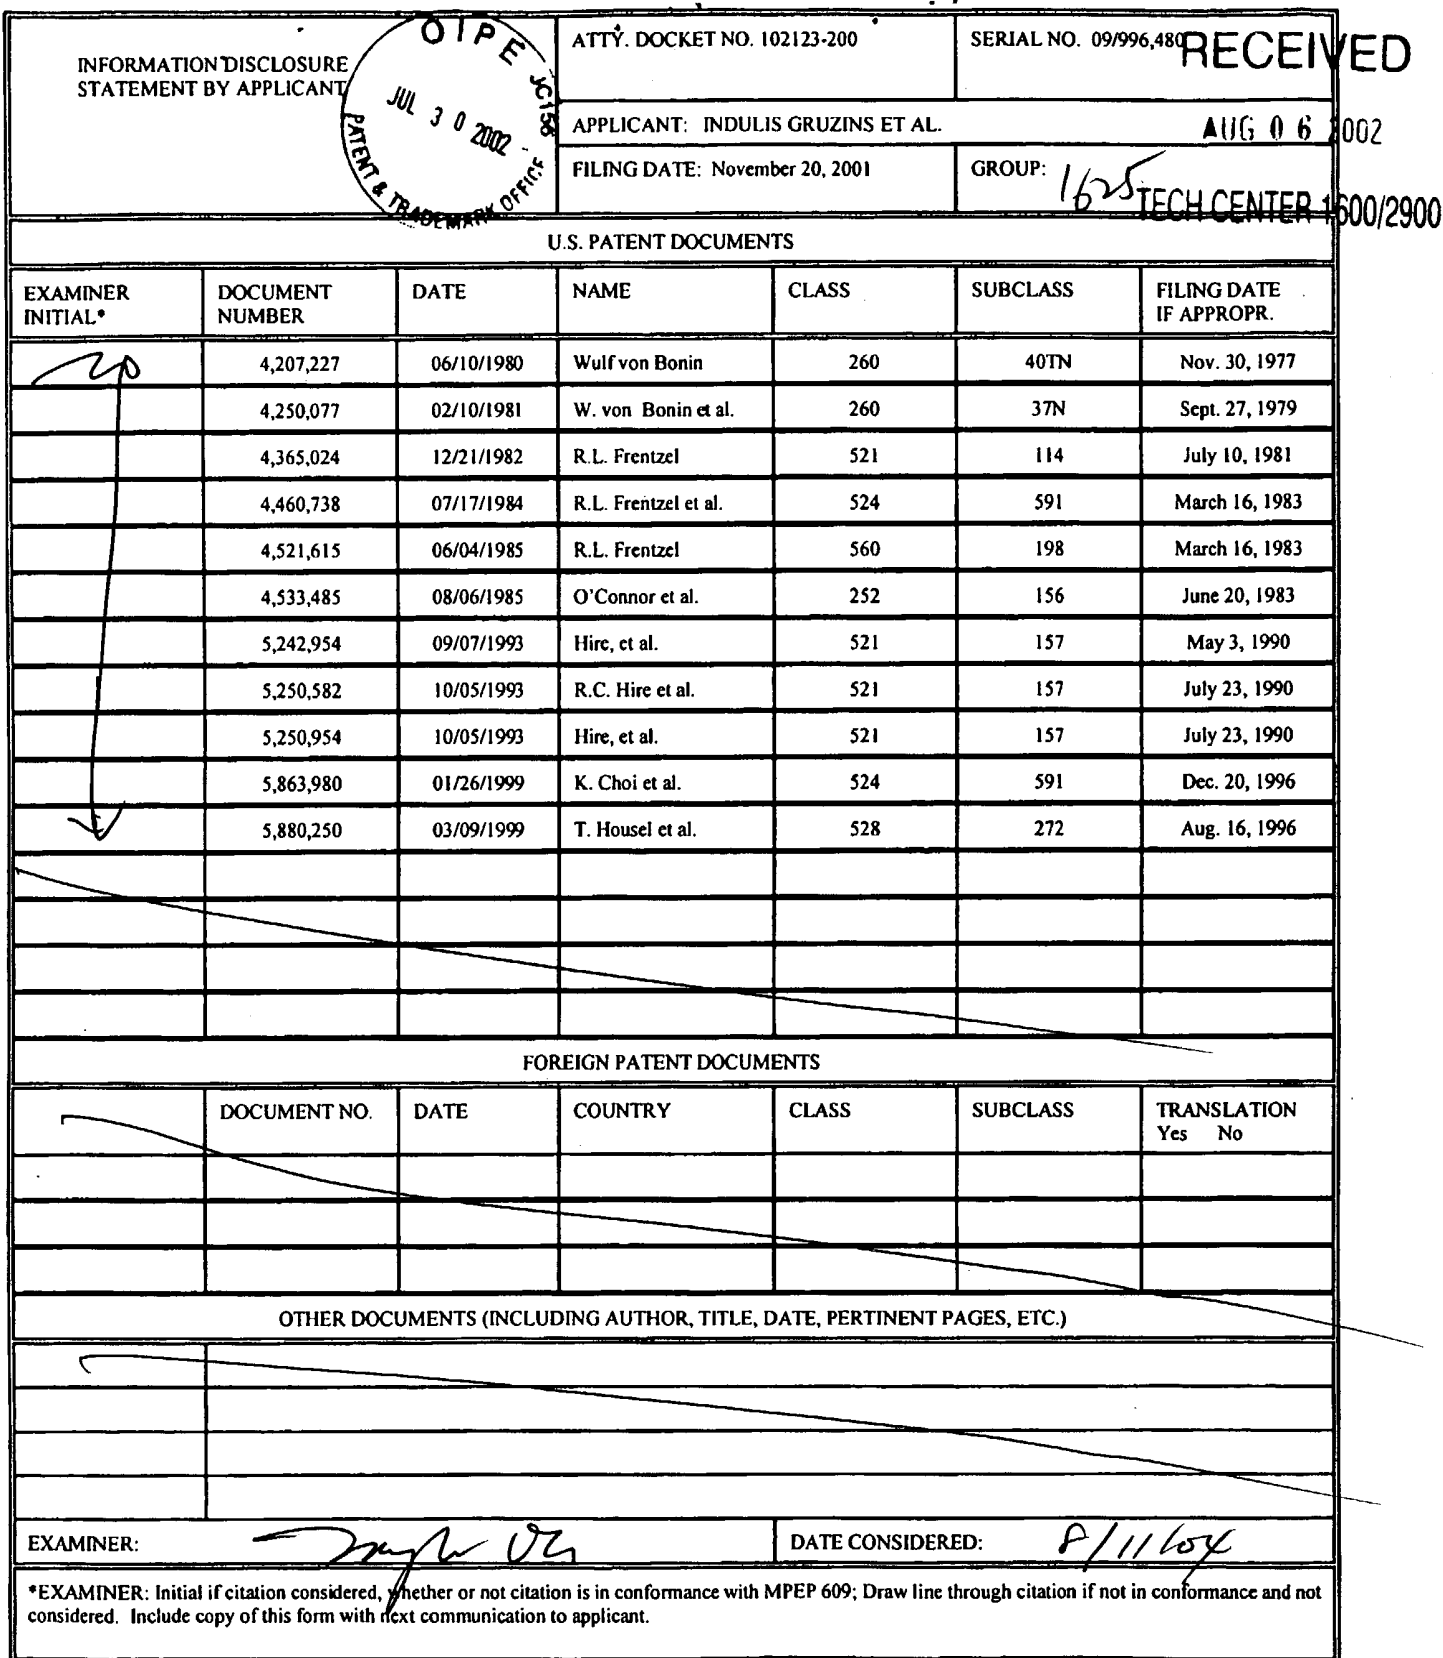 INFORMATION DISCLOSURE
STATEMENT BY APPLICANT
OIPE JC158
JUL 30 2002
PATENT & TRADEMARK OFFICE
ATTY. DOCKET NO. 102123-200
SERIAL NO. 09/996,480
RECEIVED
APPLICANT: INDULIS GRUZINS ET AL.
AUG 06 2002
FILING DATE: November 20, 2001
GROUP: 1625
TECH CENTER 1600/2900
U.S. PATENT DOCUMENTS
EXAMINER INITIAL* DOCUMENT NUMBER DATE NAME CLASS SUBCLASS FILING DATE IF APPROPR.
4,207,227 06/10/1980 Wulf von Bonin 260 40TN Nov. 30, 1977
4,250,077 02/10/1981 W. von Bonin et al. 260 37N Sept. 27, 1979
4,365,024 12/21/1982 R.L. Frentzel 521 114 July 10, 1981
4,460,738 07/17/1984 R.L. Frentzel et al. 524 591 March 16, 1983
4,521,615 06/04/1985 R.L. Frentzel 560 198 March 16, 1983
4,533,485 08/06/1985 O'Connor et al. 252 156 June 20, 1983
5,242,954 09/07/1993 Hire, et al. 521 157 May 3, 1990
5,250,582 10/05/1993 R.C. Hire et al. 521 157 July 23, 1990
5,250,954 10/05/1993 Hire, et al. 521 157 July 23, 1990
5,863,980 01/26/1999 K. Choi et al. 524 591 Dec. 20, 1996
5,880,250 03/09/1999 T. Housel et al. 528 272 Aug. 16, 1996
FOREIGN PATENT DOCUMENTS
DOCUMENT NO. DATE COUNTRY CLASS SUBCLASS TRANSLATION Yes No
OTHER DOCUMENTS (INCLUDING AUTHOR, TITLE, DATE, PERTINENT PAGES, ETC.)
EXAMINER:
DATE CONSIDERED: 8/11/04
*EXAMINER: Initial if citation considered, whether or not citation is in conformance with MPEP 609; Draw line through citation if not in conformance and not
considered. Include copy of this form with next communication to applicant.